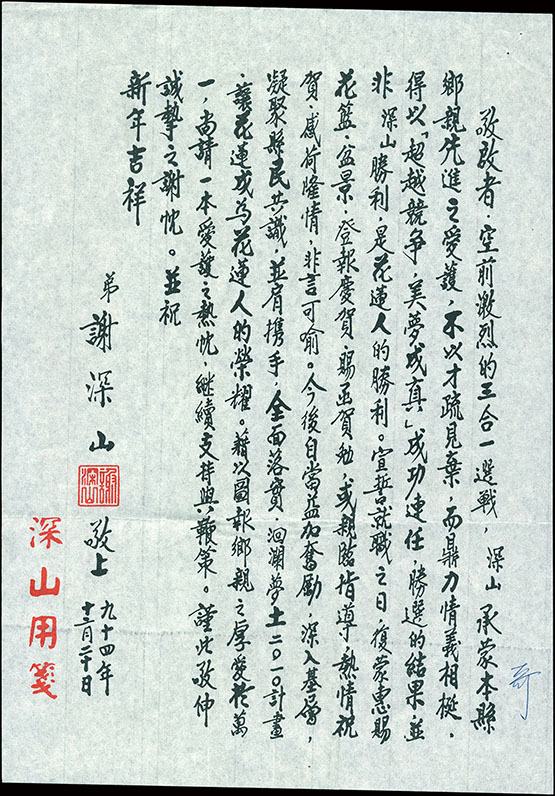 敬啟者．空前激烈的三合一選戰，深山承蒙本縣
鄉親先進之愛護，不以才疏見棄，而鼎力情義相挺．
得以「超越競爭，美夢成真」成功連任，勝選的結果並
非深山勝利，是花蓮人的勝利。宣誓就職之日，復蒙惠賜
花籃．盆景．登報慶賀．賜函賀勉，或親臨指導，熱情祝
賀．感荷隆情，非言可喻。今後自當益加奮勵，深入基層，
凝聚縣民共識，並肩攜手，全面落實．洄瀾夢土二〇一〇計畫
．讓花蓮成為花蓮人的榮耀。藉以圖報鄉親之厚愛於萬
一，尚請一本愛護之熱忱，繼續支持與鞭策。謹此敬伸
誠摯之謝忱。並祝
新年吉祥
弟 謝深山 敬上
謝深山
九十四年
十二月二十日
深山用箋